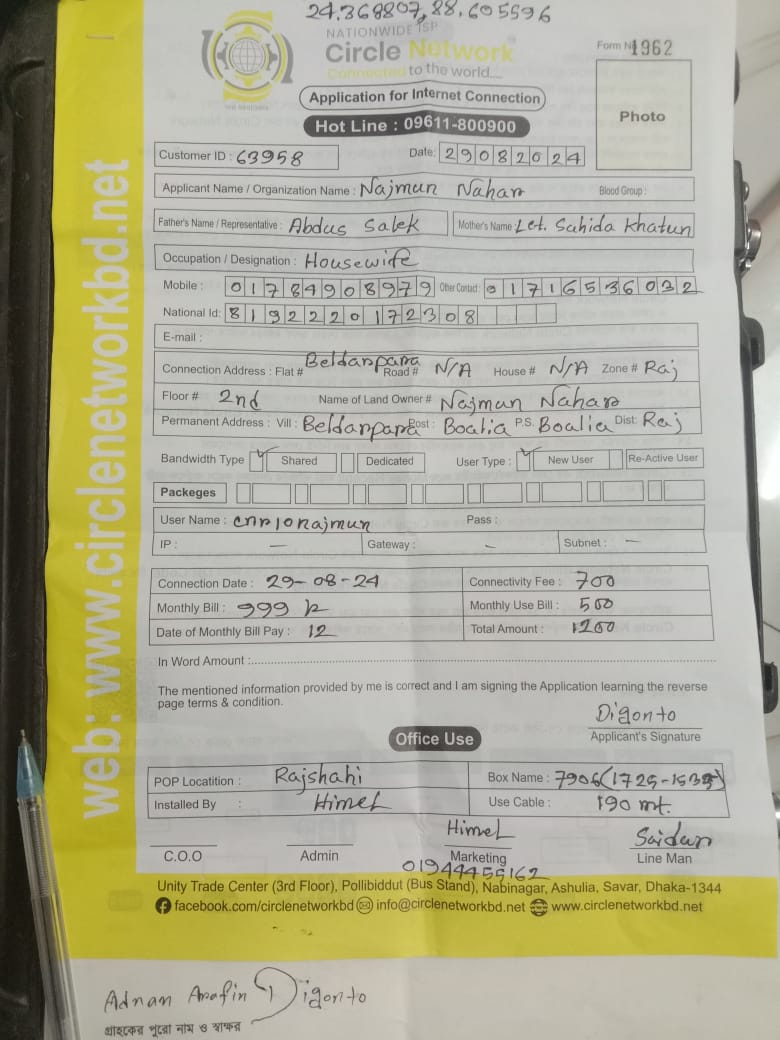 24.368807,88.605596
NATIONWIDE ISP
Circle Network
Connected to the world....
Form No 1962
Application for Internet Connection
Photo
Hot Line : 09611-800900
Customer ID : 63958 Date: 29082024
Applicant Name / Organization Name : Najmun Nahar Blood Group :
Father's Name / Representative : Abdus Salek Mother's Name : Let. Sahida Khatun
Occupation / Designation : Housewife
Mobile : 01784908979 Other Contact: 01716536032
National Id: 8192220172308
E-mail :
Connection Address : Flat # Beldarpara Road # N/A House # N/A Zone # Raj
Floor # 2nd Name of Land Owner # Najmun Nahar
Permanent Address : Vill : Beldarpara Post : Boalia P.S. Boalia Dist: Raj
Bandwidth Type Shared Dedicated User Type : New User Re-Active User
Packeges
User Name : cnrlonajmun Pass :
IP : — Gateway : — Subnet : —
Connection Date : 29-08-24 Connectivity Fee : 700
Monthly Bill : 999 Monthly Use Bill : 500
Date of Monthly Bill Pay : 12 Total Amount : 1200
In Word Amount :
The mentioned information provided by me is correct and I am signing the Application learning the reverse
page terms & condition.
Digonto
Applicant's Signature
Office Use
POP Locatition : Rajshahi Box Name : 7906(1725-1535)
Installed By : Himel Use Cable : 190 mt.
Himel Saidur
C.O.O Admin Marketing Line Man
01944455162
Unity Trade Center (3rd Floor), Pollibiddut (Bus Stand), Nabinagar, Ashulia, Savar, Dhaka-1344
facebook.com/circlenetworkbd info@circlenetworkbd.net www.circlenetworkbd.net
web: www.circlenetworkbd.net
Adnan Arafin Digonto
গ্রাহকের পুরো নাম ও স্বাক্ষর